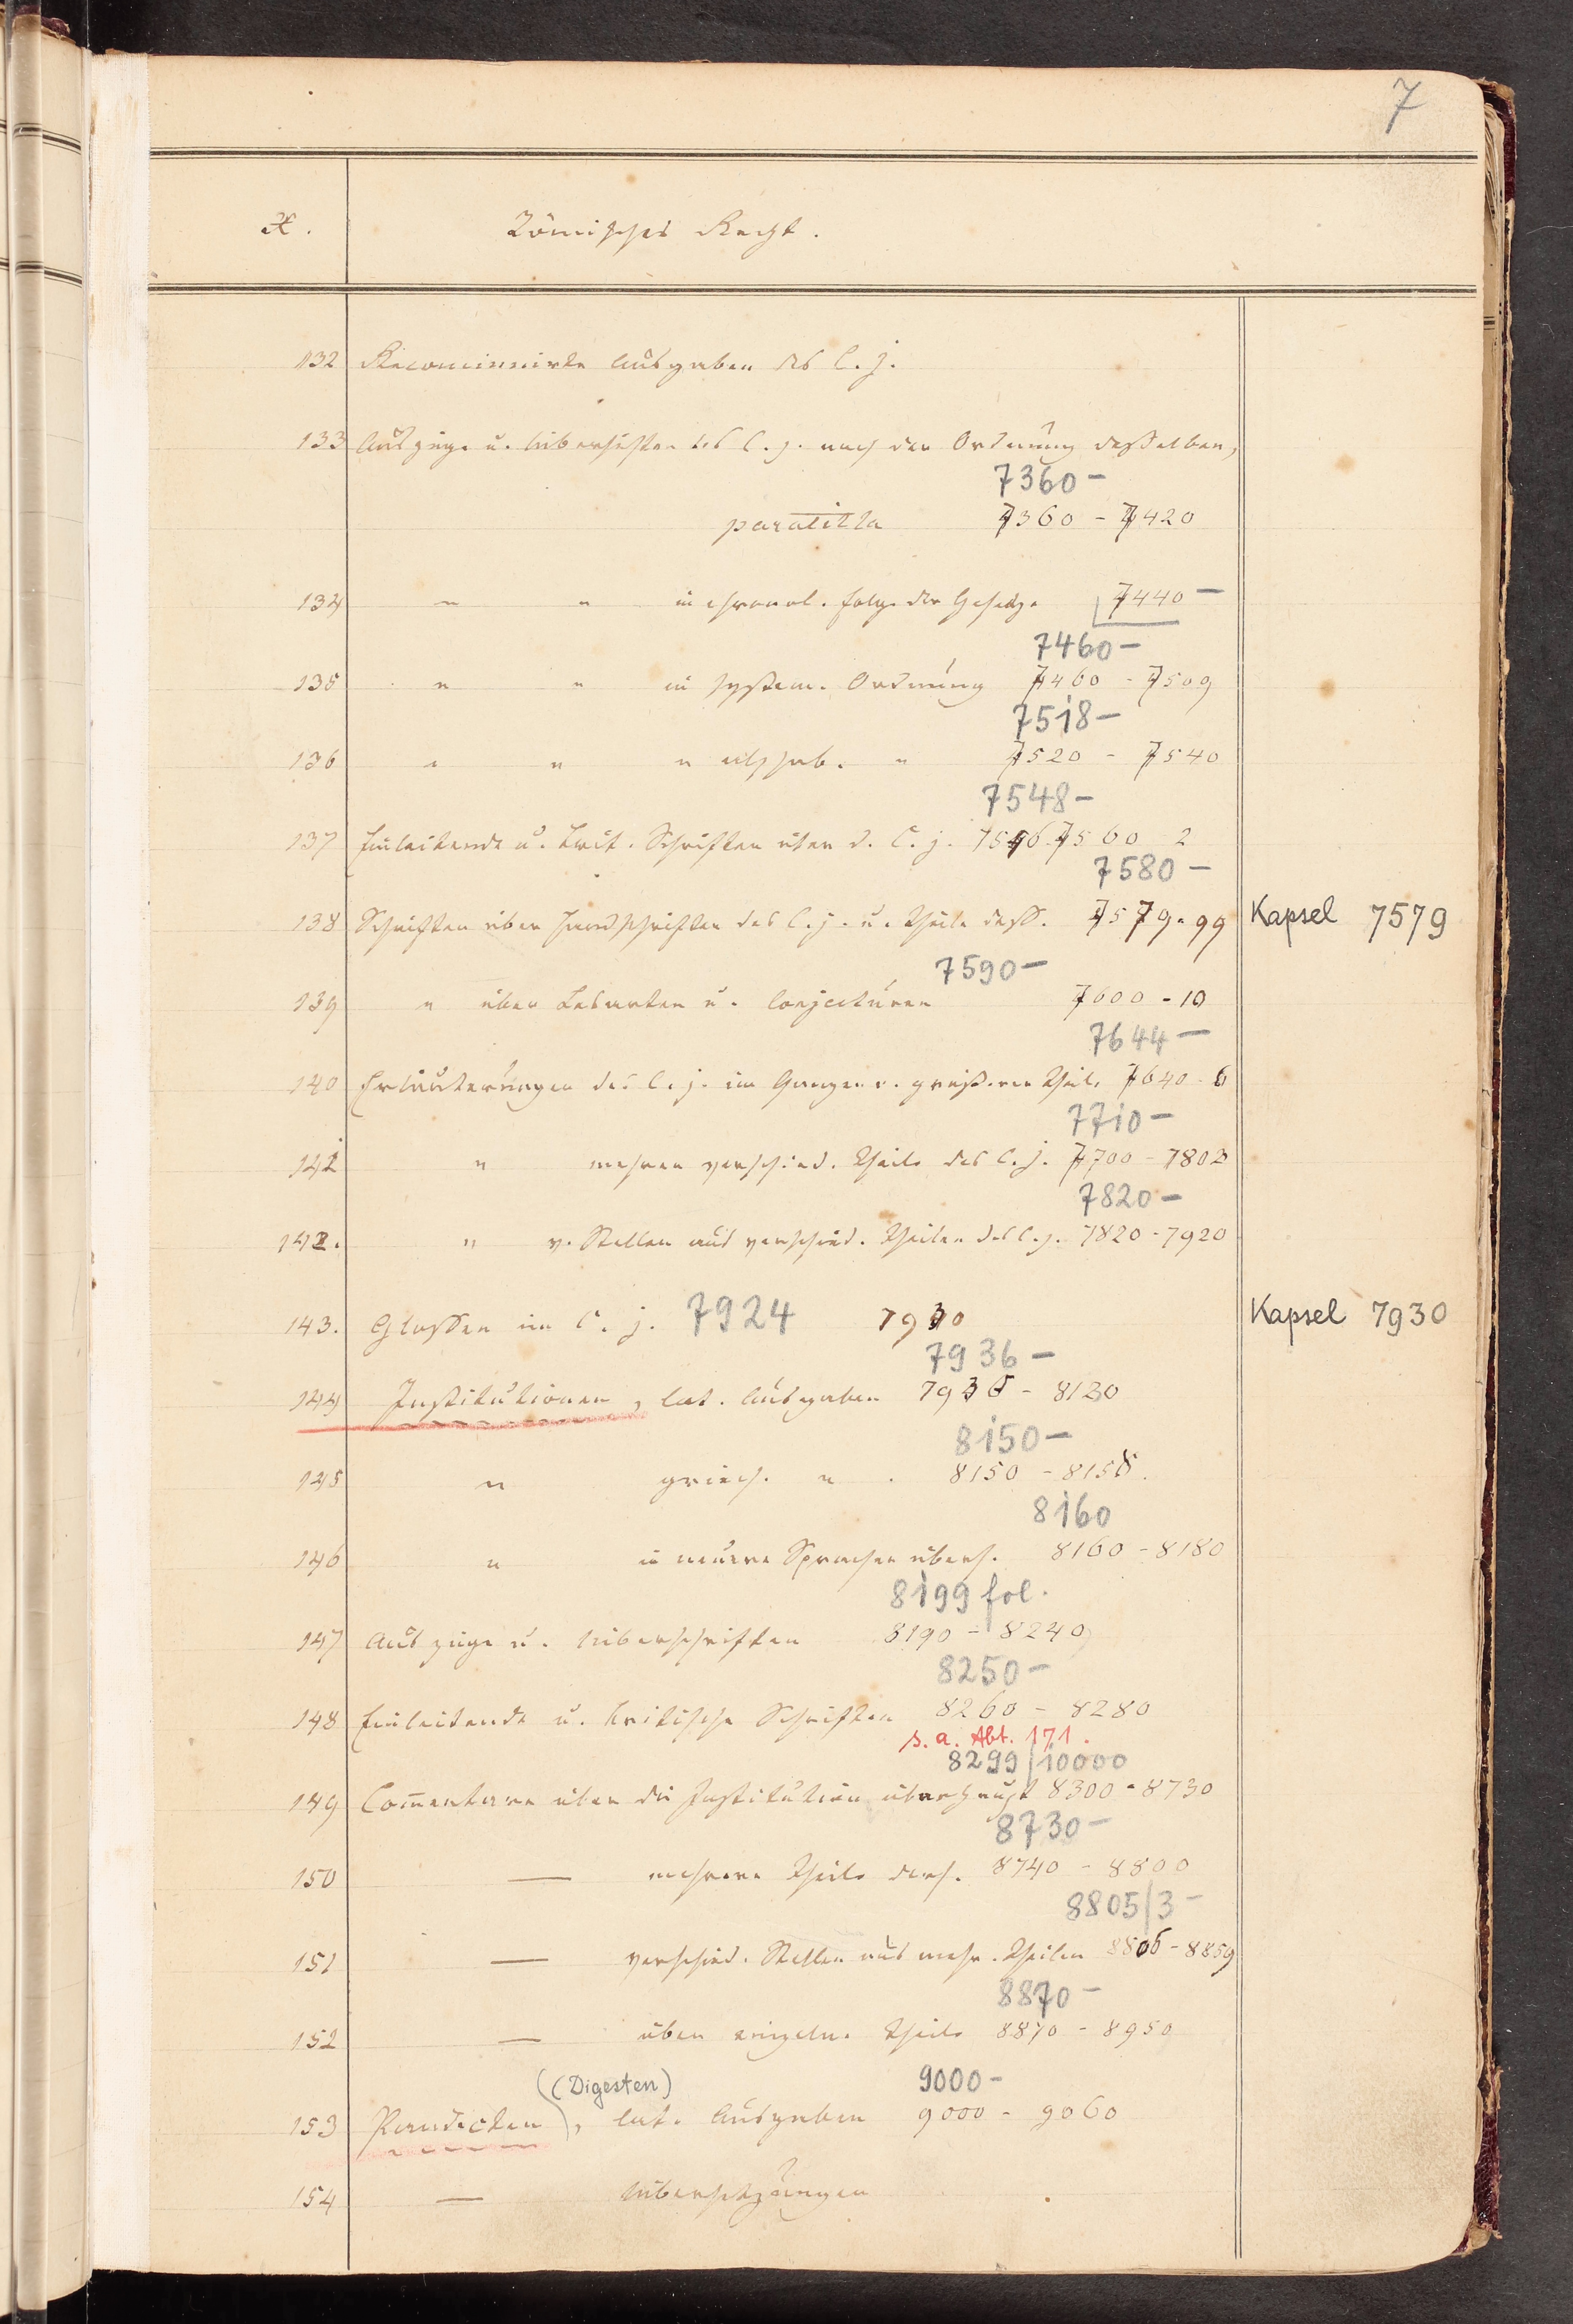 7
X. Römisches Recht.
132 Reconcinnirte Ausgaben des C. j.
133 Auszüge u. Uibersichten des C. j. nach der Ordnung desselben,
7360 –
paratitla 7360 – 7420
134 " " in chronol. Folge der Gesetze 7440 –
7460 –
135 " " in system. Ordnung 7460 – 7509
7518 –
136 " " " alphab. " 7520 – 7540
7548 –
137 Einleitende u. krit. Schriften über d. C. j. 7546 7560 2
7580 –
138 Schriften über Handschriften des C. j. u. Theile dess. 7579. 99 Kapsel 7579
7590 –
139 " über Lesarten u. Conjecturen 7600 – 10
7644 –
140 Erläuterungen des C. j. im Ganzen o. größeren Theile 7640 – 6
7710 –
141 " mehrer verschied. Theile des C. j. 7700 – 7802
7820 –
142. " v. Stellen aus verschied. Theilen des C. j. 7820 – 7920
143. Glossen im C. j. 7924 7930 Kapsel 7930
7936 –
144 Institutionen, lat. Ausgaben 7936 – 8130
8150 –
145 " griech. " . 8150 – 8158.
8160
146 " in neuere Sprachen übers. 8160 – 8180
8199 fol.
147 Auszüge u. Uiberschriften 8190 – 8240
8250 –
148 Einleitende u. kritische Schriften 8260 – 8280
s. a. Abt. 171.
8299/10000
149 Com̄entare über die Institution überhaupt 8300 – 8730
8730 –
150 — mehrere Theile ders. 8740 – 8800
8805/3 –
151 — verschied. Stellen aus mehr. Theilen 8806 – 8859
8870 –
152 — über einzelne Theile 8870 – 8950
(Digesten) 9000 –
153 Pandecten, lat. Ausgaben 9000 – 9060
154 — Uibersetzungen